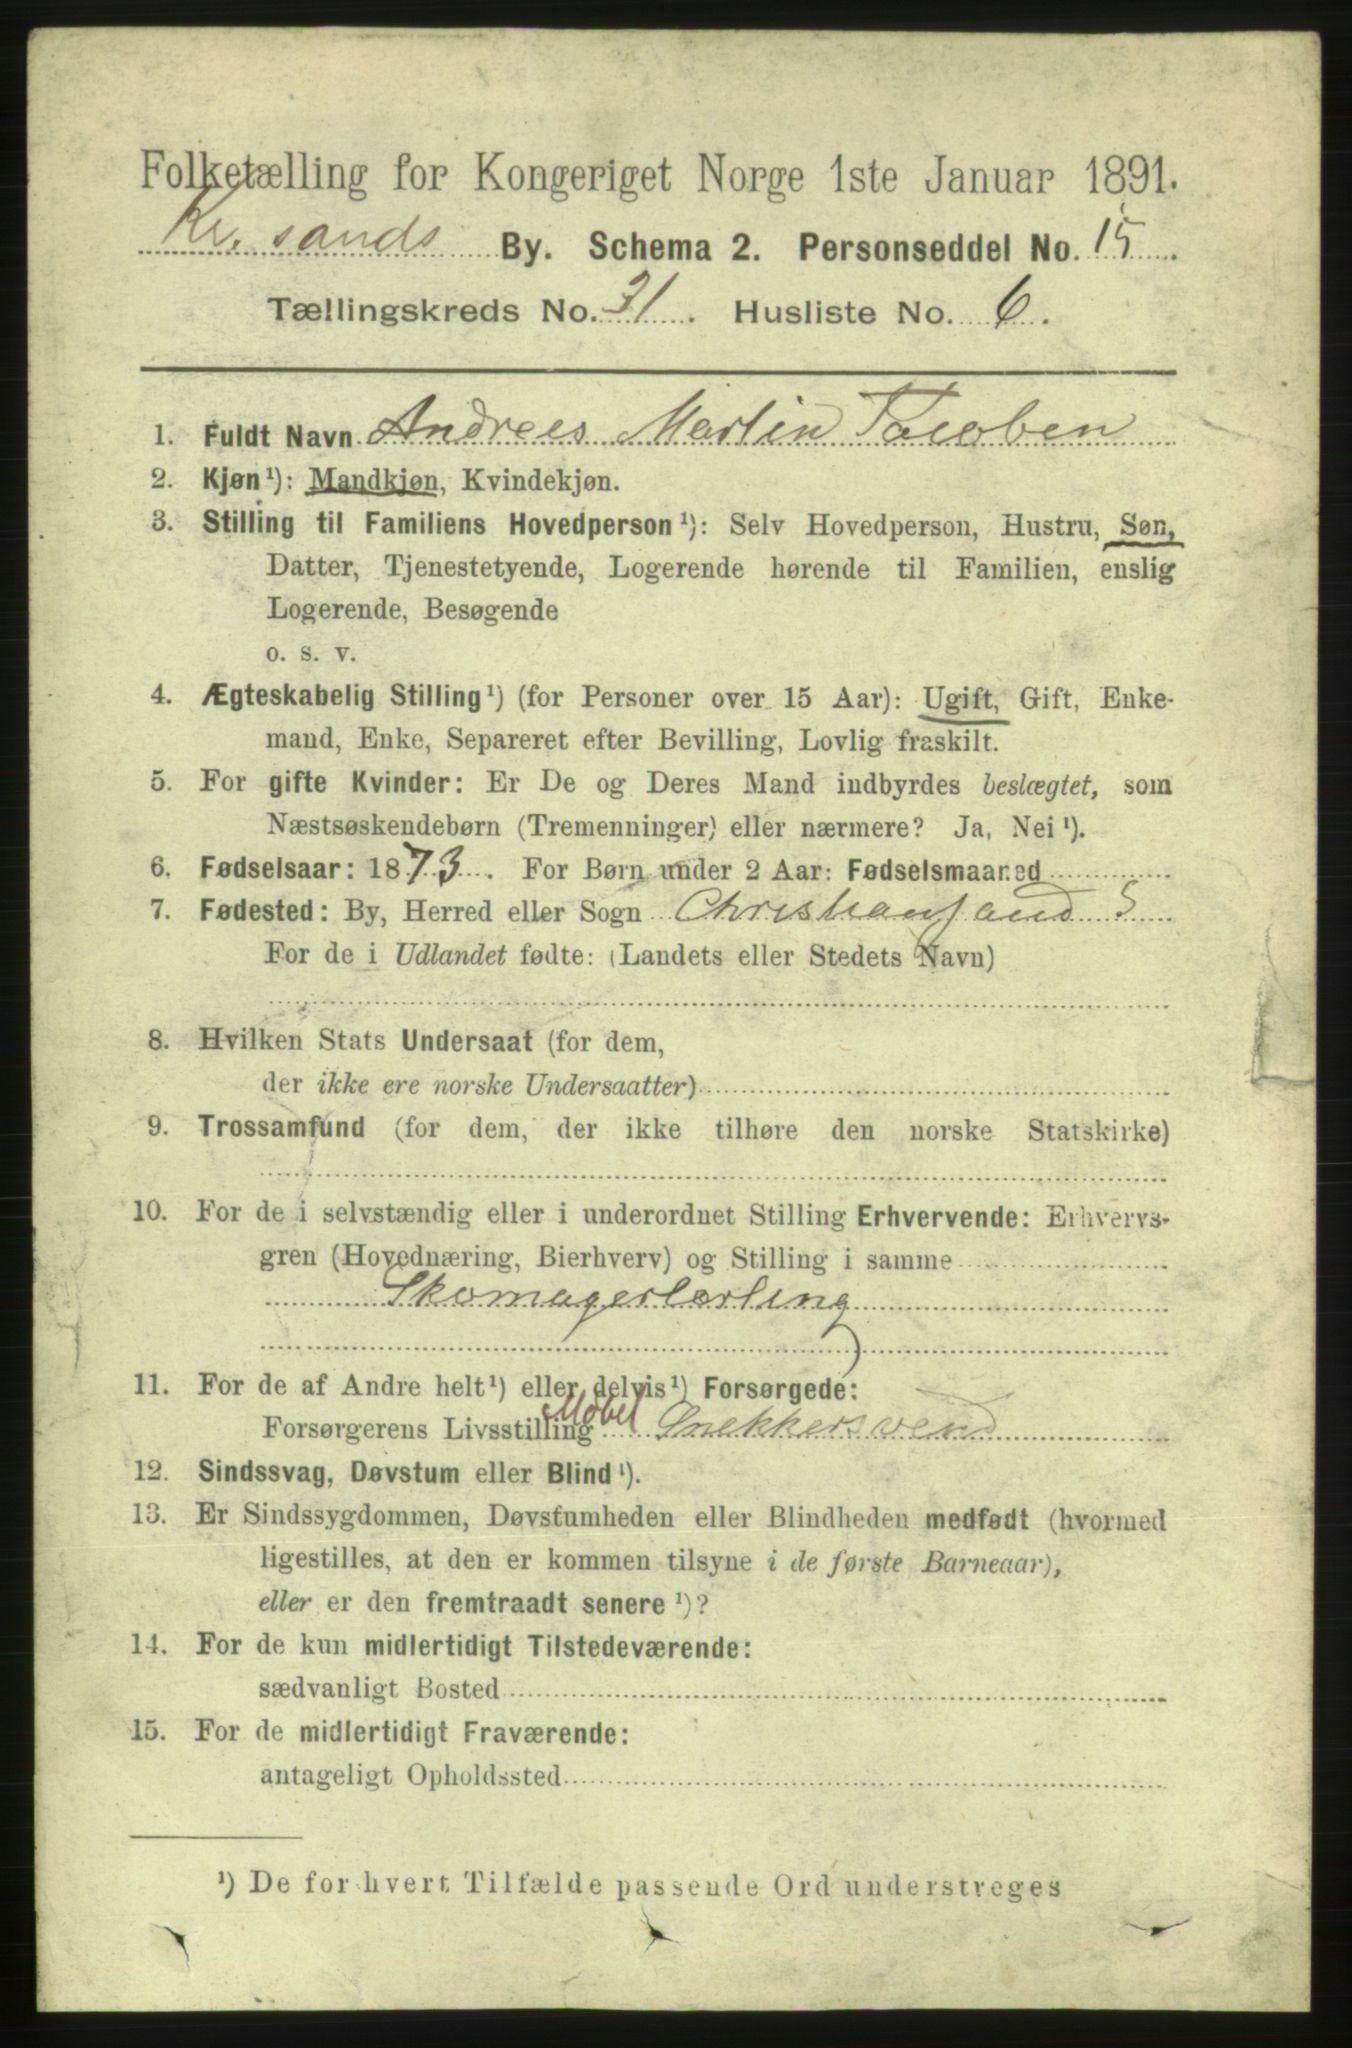 Folketælling for Kongeriget Norge 1ste Januar 1891.
Kr. sands By. Schema 2. Personseddel No. 15.
Tællingskreds No. 31. Husliste No. 6.
1. Fuldt Navn Andrees Martin Jacobsen
2. Kjøn¹): Mandkjøn, Kvindekjøn.
3. Stilling til Familiens Hovedperson¹): Selv Hovedperson, Hustru, Søn,
Datter, Tjenestetyende, Logerende hørende til Familien, enslig
Logerende, Besøgende
o. s. v.
4. Ægteskabelig Stilling¹) (for Personer over 15 Aar): Ugift, Gift, Enke-
mand, Enke, Separeret efter Bevilling, Lovlig fraskilt.
5. For gifte Kvinder: Er De og Deres Mand indbyrdes beslægtet, som
Næstsøskendebørn (Tremenninger) eller nærmere? Ja, Nei¹).
6. Fødselsaar: 1873. For Børn under 2 Aar: Fødselsmaaned
7. Fødested: By, Herred eller Sogn Christiansand S
For de i Udlandet fødte: (Landets eller Stedets Navn)
8. Hvilken Stats Undersaat (for dem,
der ikke ere norske Undersaatter)
9. Trossamfund (for dem, der ikke tilhøre den norske Statskirke)
10. For de i selvstændig eller i underordnet Stilling Erhvervende: Erhvervs-
gren (Hovednæring, Bierhverv) og Stilling i samme
Skomagerlærling
11. For de af Andre helt¹) eller delvis¹) Forsørgede:
Forsørgerens Livsstilling Møbel Snekkersvend
12. Sindssvag, Døvstum eller Blind¹).
13. Er Sindssygdommen, Døvstumheden eller Blindheden medfødt (hvormed
ligestilles, at den er kommen tilsyne i de første Barneaar),
eller er den fremtraadt senere¹)?
14. For de kun midlertidigt Tilstedeværende:
sædvanligt Bosted
15. For de midlertidigt Fraværende:
antageligt Opholdssted
¹) De for hvert Tilfælde passende Ord understreges